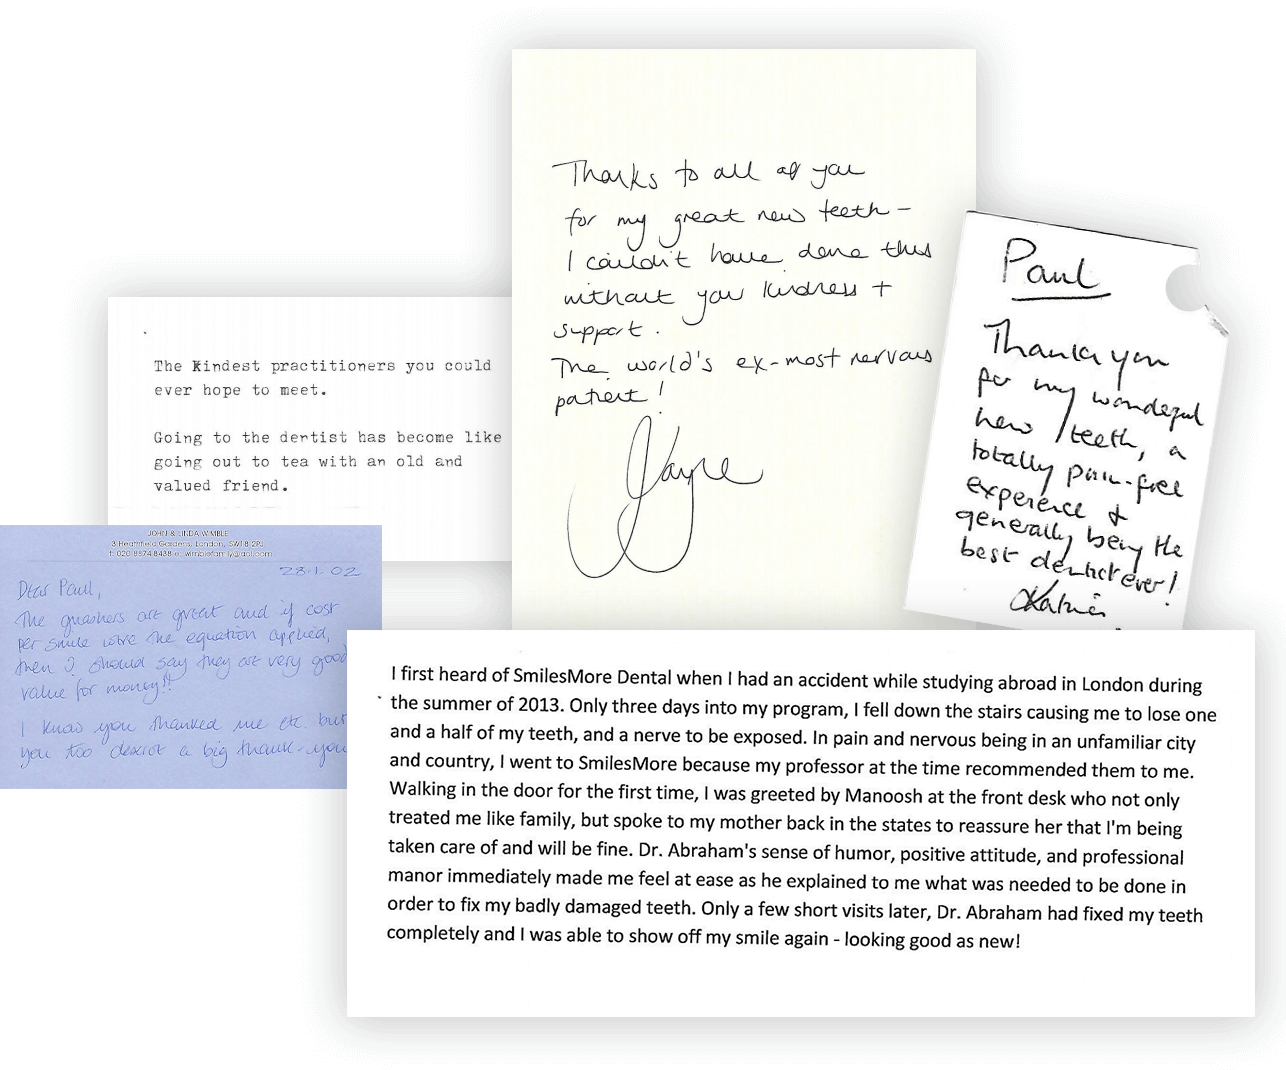 Thanks to all of you
for my great new teeth -
I couldn't have done this
without you kindness +
support.
The world's ex-most nervous
patient!
Jayne
Paul
Thank you
for my wonderful
new teeth, a
totally pain-free
experience &
generally being the
best dentist ever!
The Kindest practitioners you could
ever hope to meet.
Going to the dentist has become like
going out to tea with an old and
valued friend.
JOHN & LINDA WIMBLE
3 Heathfield Gardens, London, SW18 2PJ
t: 020 8874 8438 e: wimblefamily@aol.com
28.1.02
Dear Paul,
The gnashers are great and if cost
per smile were the equation applied,
then I should say they are very good
value for money!!
I know you thanked me etc but
you too deserve a big thank-you
I first heard of SmilesMore Dental when I had an accident while studying abroad in London during
the summer of 2013. Only three days into my program, I fell down the stairs causing me to lose one
and a half of my teeth, and a nerve to be exposed. In pain and nervous being in an unfamiliar city
and country, I went to SmilesMore because my professor at the time recommended them to me.
Walking in the door for the first time, I was greeted by Manoosh at the front desk who not only
treated me like family, but spoke to my mother back in the states to reassure her that I'm being
taken care of and will be fine. Dr. Abraham's sense of humor, positive attitude, and professional
manor immediately made me feel at ease as he explained to me what was needed to be done in
order to fix my badly damaged teeth. Only a few short visits later, Dr. Abraham had fixed my teeth
completely and I was able to show off my smile again - looking good as new!